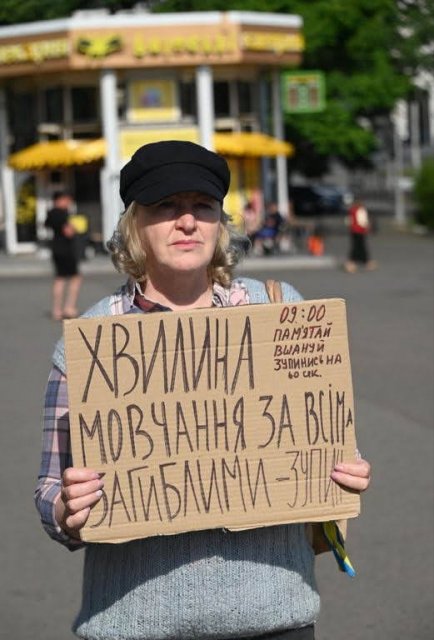 09:00
ПАМ'ЯТАЙ
ВШАНУЙ
ЗУПИНИСЬ НА
60 СЕК.
ХВИЛИНА
МОВЧАННЯ ЗА ВСІМА
ЗАГИБЛИМИ –